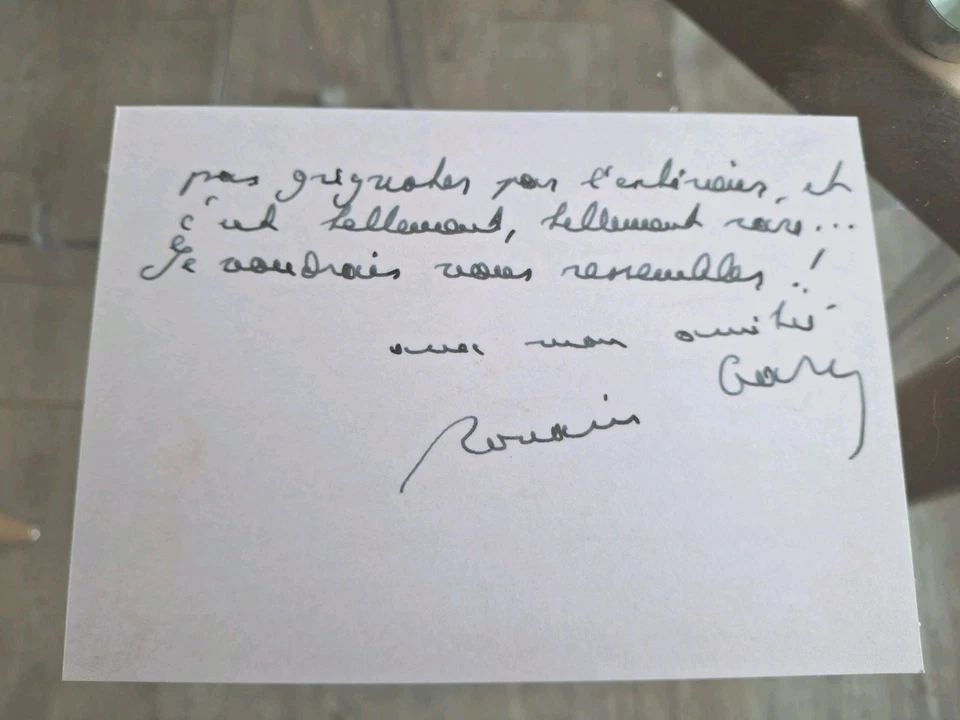 pas grignoter par l'extérieur, et
c'est tellement, tellement rare...
Je voudrais vous ressembler !
avec mon amitié
Romain Gary